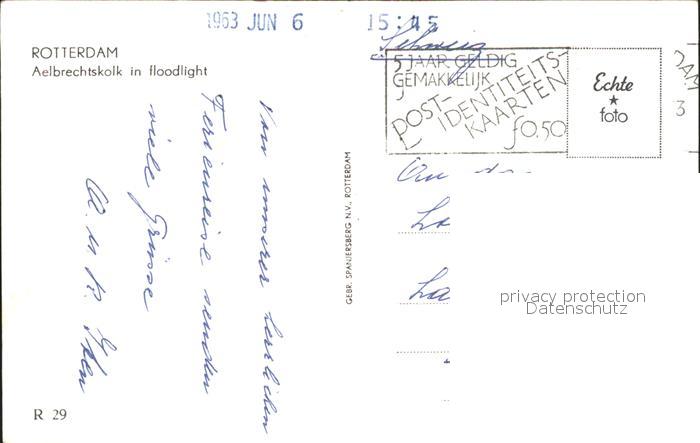 1963 JUN 6 15:45
ROTTERDAM
Aelbrechtskolk in floodlight
Schweiz
5 JAAR GELDIG
GEMAKKELIJK
POST-
IDENTITEITS-
KAARTEN
f0.50
Echte
★
foto
3
Von unserer herrlichen
Ferienreise senden
viele Grüsse
GEBR. SPANJERSBERG N.V., ROTTERDAM
La
privacy protection
Datenschutz
R 29